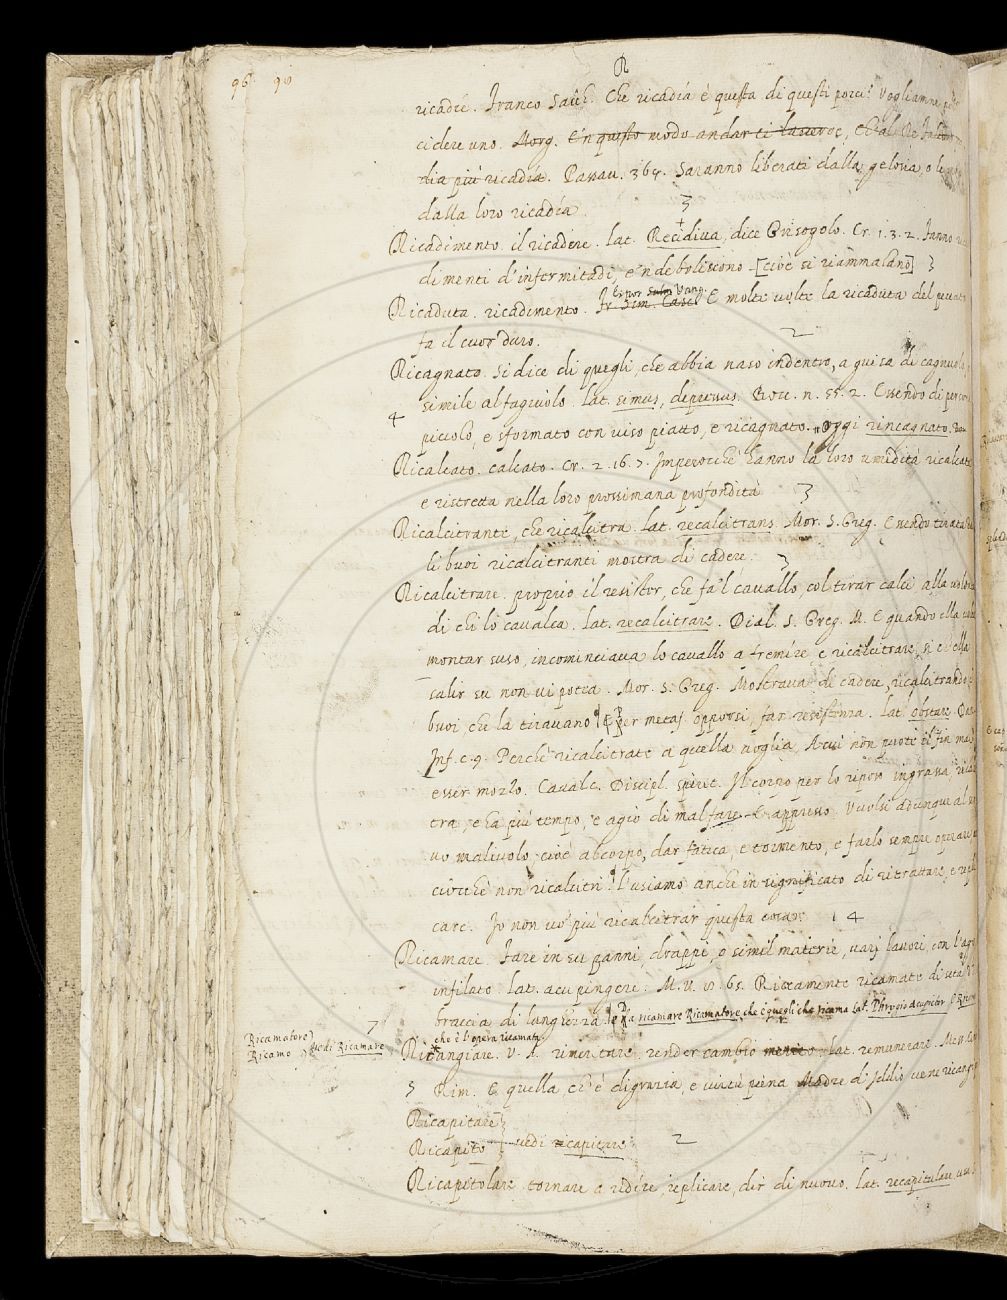 96 90
R
ricadíe. Franco Sacch. Che ricadía è questa di questi porci? Vogliamne
cidere uno. Morg. E'n questo modo andar ti lascerò
dia più ricadía. Passau. 364. Saranno liberati dalla gelosia, o
dalla loro ricadía. 3
Ricadimento. il ricadere. Lat. Recidiua, dice Grisogolo. Cr. 1. 3. 2. Fanno
dimenti d'infermitadi, e'ndeboliscono [cioè si riammalano] 3
Espos. Salm Vang.
Ricaduta. ricadimento. Fr Sim. Casc. E molte uolte la ricaduta del
fa il cuor duro. 2
Ricagnato. Si dice di quegli, che abbia naso indentro, a guisa di cagnuolo
simile al fagiuolo. Lat. simus, depressus. Bocc. n. 55. 2. Essendo di
4 piccolo, e sformato con uiso piatto, e ricagnato. oggi rincagnato.
Ricalcato. calcato. Cr. 2. 16. 7. Imperocchè hanno la loro umidità ricalcata
e ristretta nella loro prossimana profondità 3
Ricalcitrante, che ricalcitra. Lat. recalcitrans. Mor. S. Greg. Essendo tirata
li buoi ricalcitranti mostra di cadere. 3
Ricalcitrare. proprio il resister, che fa'l cauallo, col tirar calci alla uolontà
di chi lo caualca. Lat. recalcitrare. Dial. S. Greg. M. E quando ella
montar suso, incominciaua lo cauallo a fremire, e ricalcitrare, si ch'ella
salir su non ui potea. Mor. S. Greg. Mostraua di cadere, ricalcitrando
buoi, che la tirauano. Per metaf. opporsi, far resistenza. Lat. obstare.
Inf. c. 9. Perchè ricalcitrate a quella uoglia, A cui non puote il fin mai
esser mozzo. Caualc. Discipl. spirit. Il corpo per lo riposo ingrassa,
tra, e ha più tempo, e agio di mal fare. E appresso. Vuolsi adunque al
uo maliuolo, cioè al corpo, dar fatica, e tormento, e farlo sempre operare,
ciocchè non ricalcitri. L'usiamo anche in significato di ritrattare, e
care. Io non uo' più ricalcitrar questa cosa. 4
Ricamare. Fare in su panni, drappi, o simil materie, varj lauori, con l'ago
infilato. Lat. acu pingere. M. V. 8. 65. Riccamente ricamate di seta
braccia di lunghezza. Da ricamare Ricamatore, che è quegli che ricama Lat. Phrygio acupictor
Ricamatore
Ricamo vedi Ricamare
che è l'opera ricamata
Ricangiare. V. A. rimeritare, render cambio merito. Lat. remunerare.
5 Rim. E quella, ch'è di grazia, e uirtù piena Madre d'Iddio
Ricapitare
Ricapito vedi recapitare 2
Ricapitolare. tornare a ridire, replicare, dir di nuouo. Lat. recapitulare